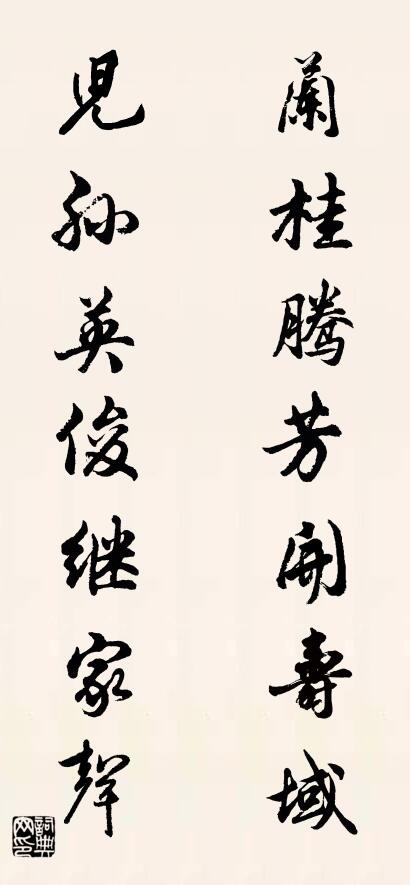 蘭桂騰芳開壽域
児孫英俊継家聲
詞典网印